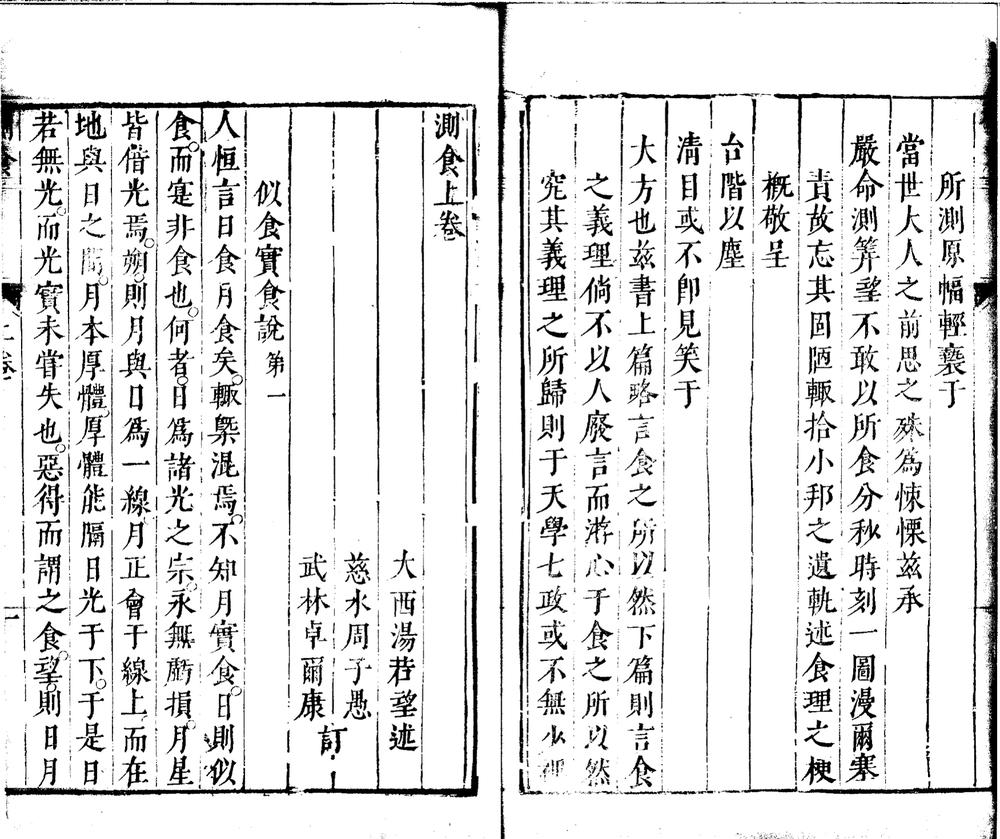 所測原幅輕褻于
當世大人之前思之殊爲悚慄茲承
嚴命測筭望不敢以所食分秒時刻一圖漫爾塞
責故忘其固陋輙拾小邦之遺軌述食理之梗
概敬呈
台階以塵
淸目或不卽見笑于
大方也兹書上篇略言食之所以然下篇則言食
之義理倘不以人廢言而游心于食之所以然
究其義理之所歸則于天學七政或不無少裨
測食上卷
大西湯若望述
慈水周子愚
武林卓爾康
訂
似食實食說第一
人恒言日食月食矣輙槩混焉不知月實食日則似
食而寔非食也何者日爲諸光之宗永無虧損月星
皆借光焉朔則月與日爲一線月正會于線上而在
地與日之間月本厚體厚體能隔日光于下于是日
若無光而光實未嘗失也惡得而謂之食望則日月
上卷
一